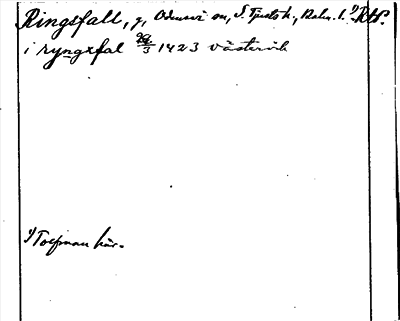 Ringsfall, g, Odensvi sn, S. Tjusts h, Kalm. l. 1) RAP.
i ryngxfal 29/3 1423 Västervik
1) Torpman här.